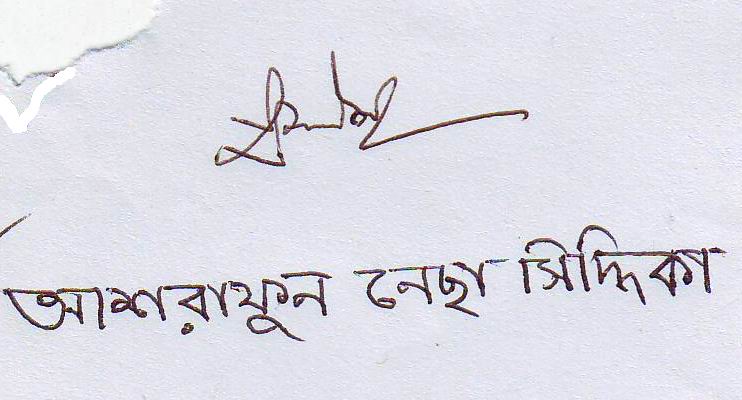 আশরাফুন নেছা সিদ্দিকা